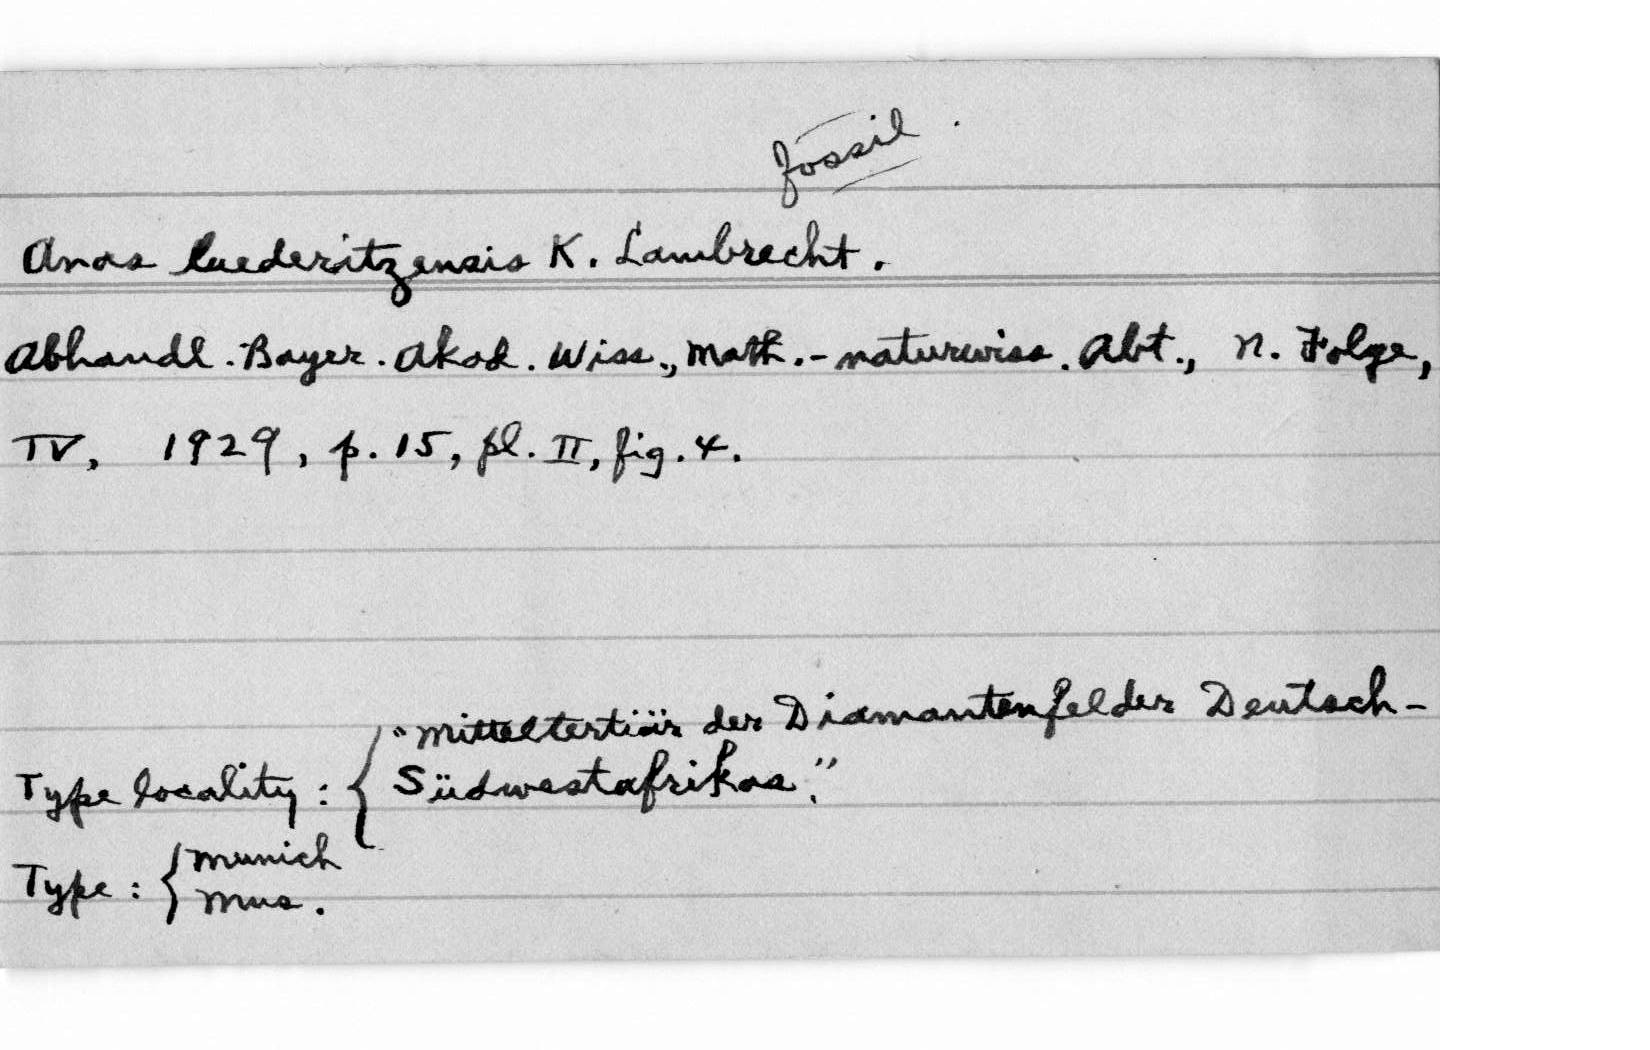 fossil.
Anas luederitzensis K. Lambrecht.
Abhandl. Bayer. Akad. Wiss., Math.-naturwiss. Abt., N. Folge,
IV, 1929, p. 15, pl. II, fig. 4.
"Mitteltertiär der Diamantenfelder Deutsch-
Type locality: { Südwestafrikas."
Type: { Munich
Mus.